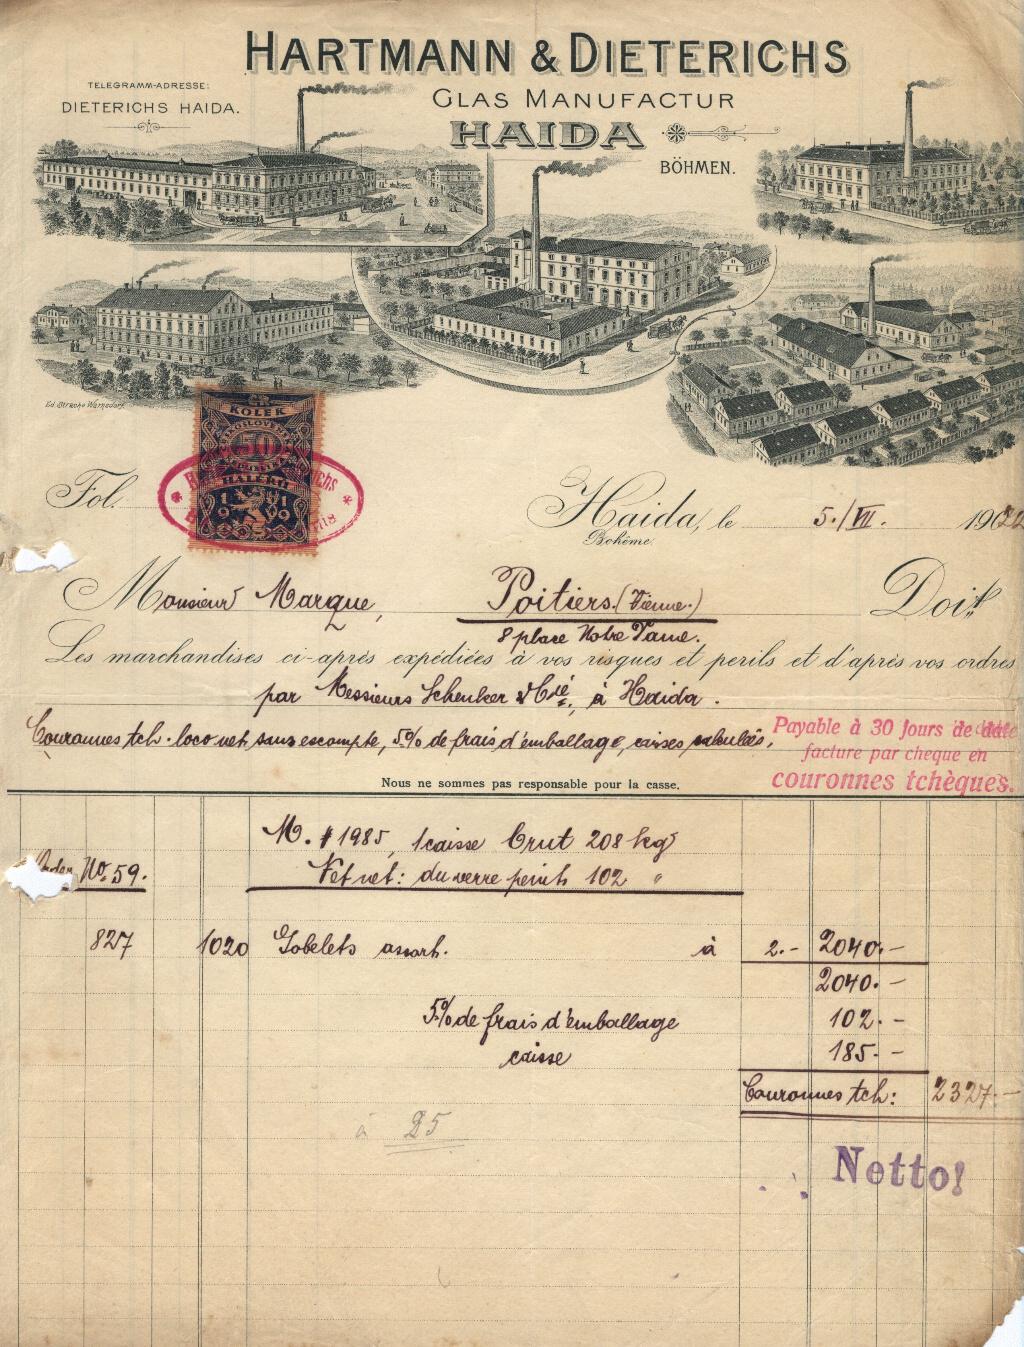 HARTMANN & DIETERICHS
TELEGRAMM-ADRESSE:
DIETERICHS HAIDA.
GLAS MANUFACTUR
HAIDA
BÖHMEN.
Ed. Strache Warnsdorf.
KOLEK
50
HALÉŘŮ
1919
Fol.
Haida, le 5./VII. 1922
Bohême.
Monsieur Marque, Poitiers. (Vienne.) Doit
8 place Notre Dame.
Les marchandises ci-après expédiées à vos risques et perils et d'après vos ordres
par Messieurs Schenker & Cié, à Haida.
Couronnes tch. loco net, sans escompte, 5% de frais d'emballage, caisses calculées,
Payable à 30 jours de date
facture par cheque en
couronnes tchèques.
Nous ne sommes pas responsable pour la casse.
M. # 1985, 1 caisse Brut 208 kgs
Order No. 59. Net net: du verre peint 102 "
827 1020 Gobelets assort. à 2.- 2040.-
2040.-
5% de frais d'emballage 102.-
caisse 185.-
Couronnes tch: 2327.-
à 25
Netto!